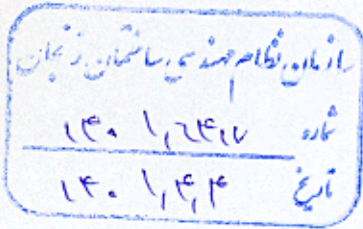 سازمان نظام مهندسی ساختمان زنجان
شماره ۱۴۰۱,۶۴۱۷
تاریخ ۱۴۰۱,۴,۴